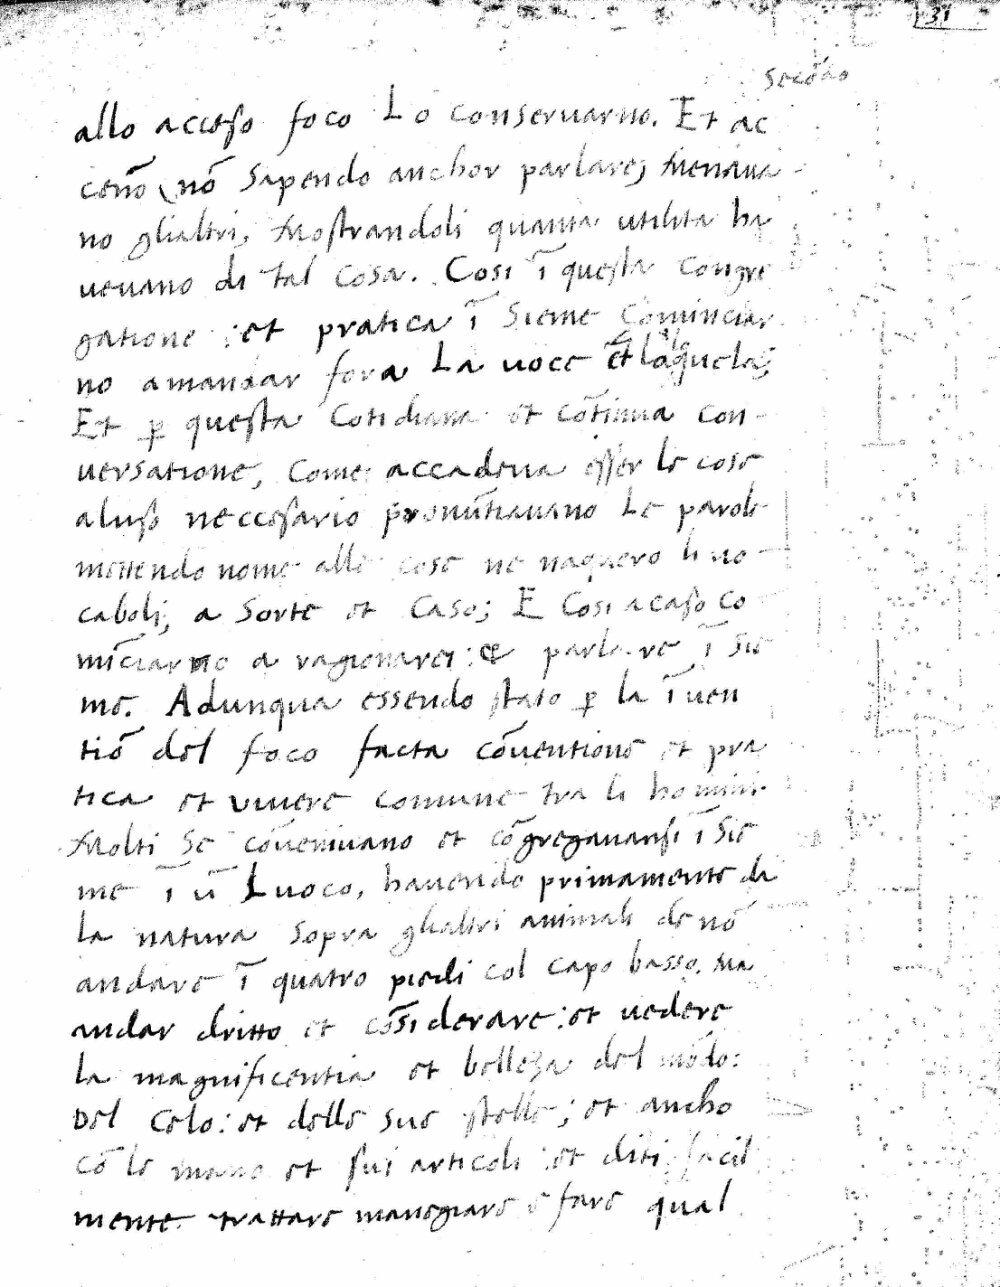 31
Secōdo
allo acceso foco Lo conseruarno. Et ac
cenō nō sapendo anchor parlare, menaua
no glialtri, mostrandoli quanta utilita ha
ueuano di tal cosa. Cosi ī questa congre
gatione: et pratica ī sieme cominciar
no amandar fora La uoce et laquela;
Et p̱ questa cotidiana et cōtinua con
uersatione, come accadeua esser le cose
aluso neccesario pronūtiauano Le parole
mettendo nome alle cose ne naquero li uo
caboli, a sorte et caso; E cosi acaso co
mīciarno a ragionare: e parlare ī sie
me. Adunqua essendo stato p̱ la īuen
tiō del foco facta cōuentione et pra
tica et uiuere comune tra li homini.
Molti se cōueniuano et cōgregauansi ī sie
me ī ū Luoco, hauendo primamente da
La natura sopra glialtri animali de nō
andare ī quatro piedi col capo basso. ma
andar dritto et cōsiderare: et uedere
la magnificentia et belleza del mōdo:
Del Celo: et delle sue stelle; et ancho
cō le mano et sui articoli: et diti facil
mente trattare manegiare e fare qual